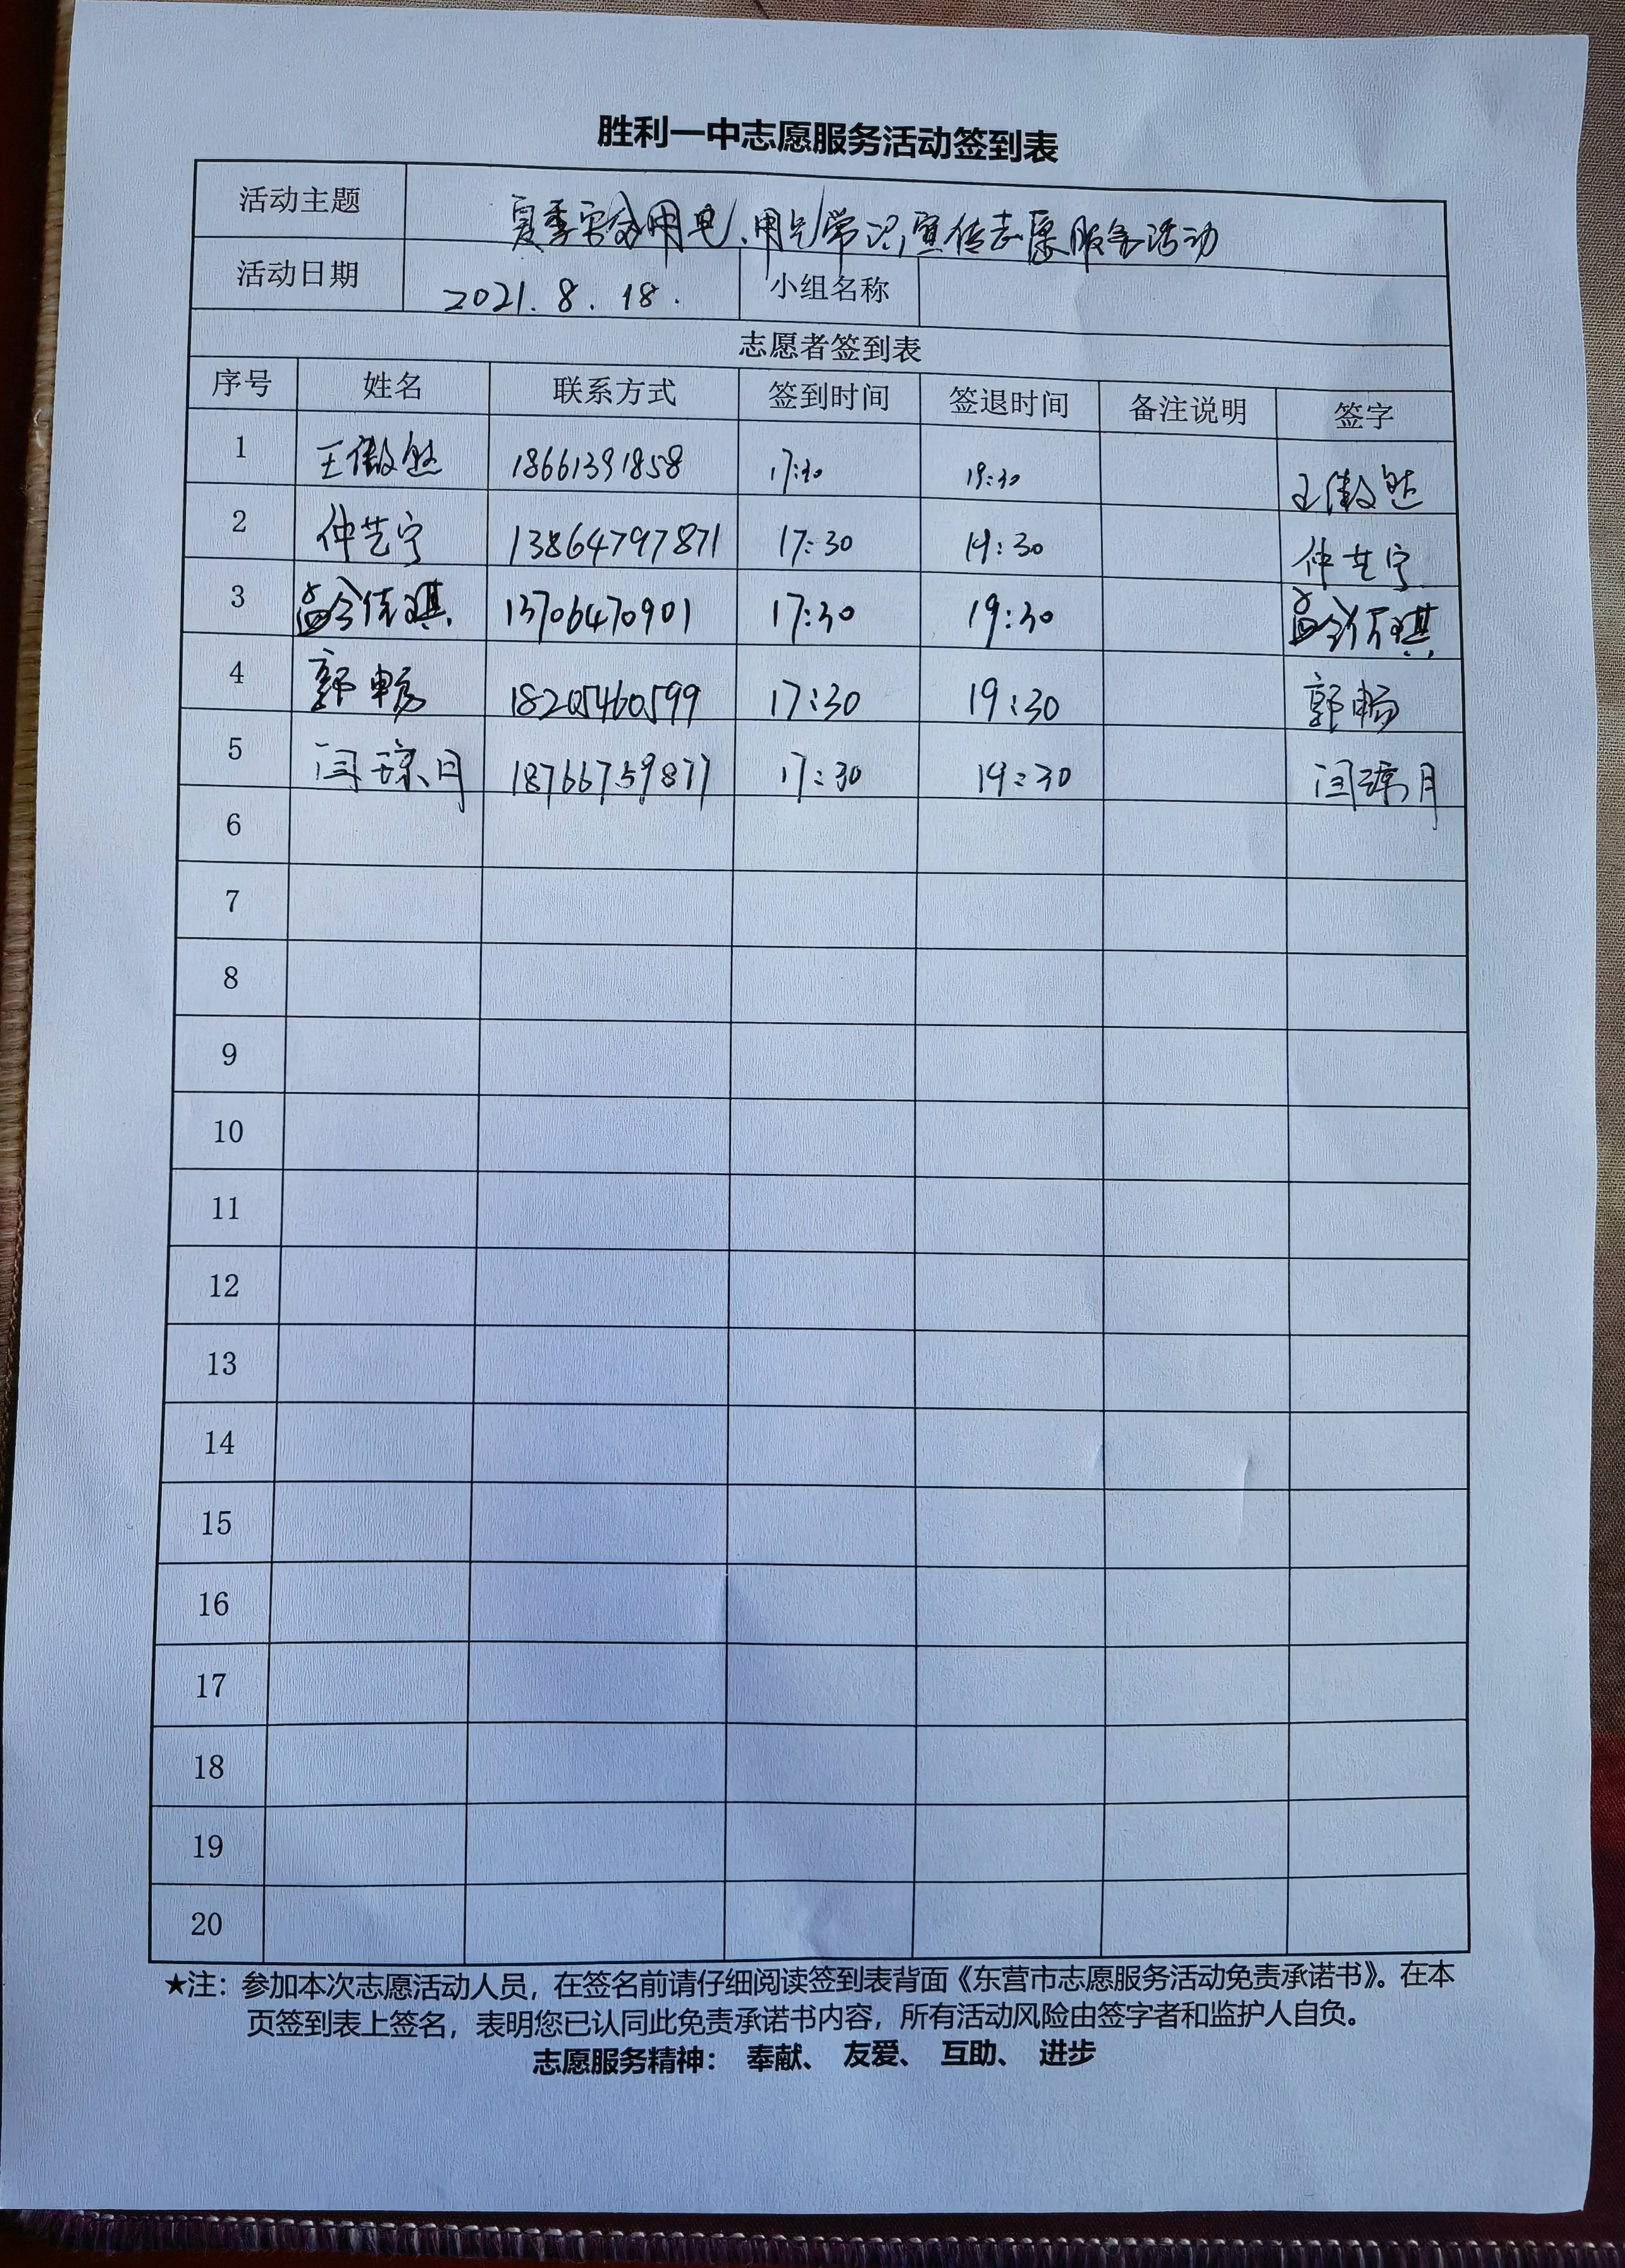 胜利一中志愿服务活动签到表
活动主题 夏季安全用电、用气常识宣传志愿服务活动
活动日期 2021.8.18. 小组名称
志愿者签到表
序号 姓名 联系方式 签到时间 签退时间 备注说明 签字
1 王傲然 18661391858 17:30 19:30 王傲然
2 仲艺宁 13864797871 17:30 19:30 仲艺宁
3 佳琪 13706470901 17:30 19:30 佳琪
4 郭畅 18205460599 17:30 19:30 郭畅
5 闫琼月 18766759877 17:30 19:30 闫琼月
6
7
8
9
10
11
12
13
14
15
16
17
18
19
20
★注：参加本次志愿活动人员，在签名前请仔细阅读签到表背面《东营市志愿服务活动免责承诺书》。在本
页签到表上签名，表明您已认同此免责承诺书内容，所有活动风险由签字者和监护人自负。
志愿服务精神： 奉献、 友爱、 互助、 进步